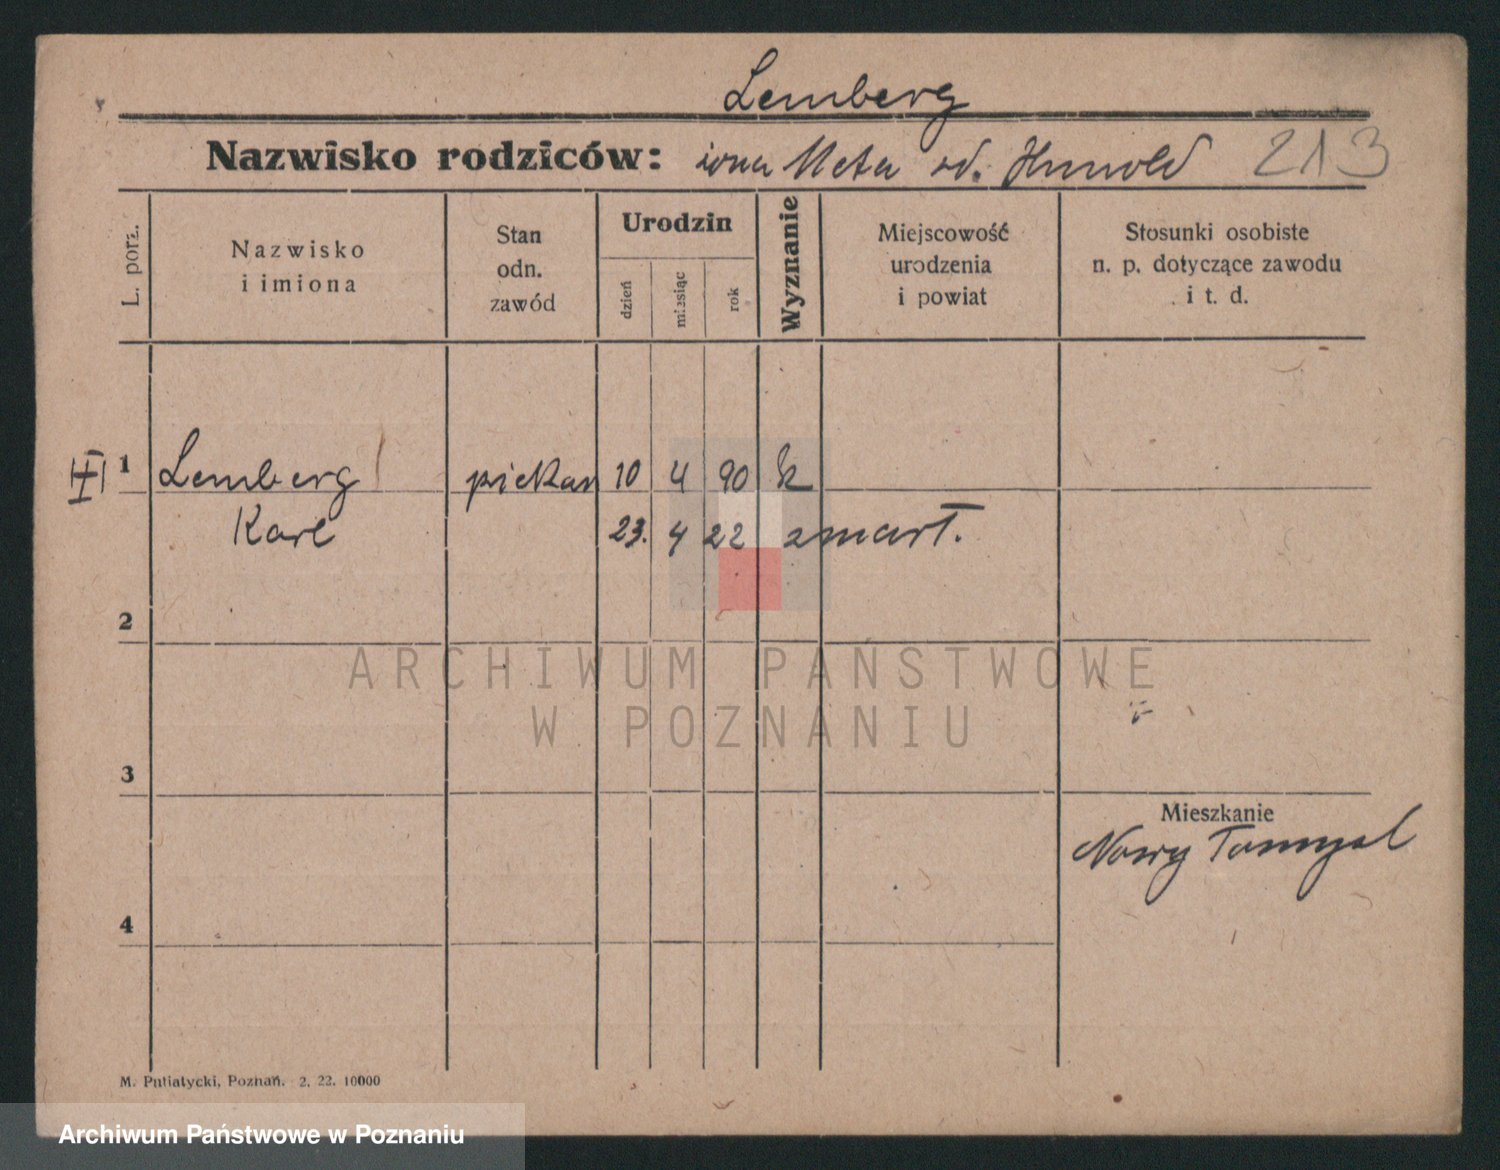 Lemberg
Nazwisko rodziców: żona Meta od. Hunold 213
L. porz.
Nazwisko
i imiona
Stan
odn.
zawód
Urodzin
dzień
miesiąc
rok
Wyznanie
Miejscowość
urodzenia
i powiat
Stosunki osobiste
n. p. dotyczące zawodu
i t. d.
1 Lemberg piekarz 10 4 90 k
Karl 23. 4 22 zmarł.
2
ARCHIWUM PAŃSTWOWE
W POZNANIU
3
Mieszkanie
Nowy Tomysl
4
M. Putiatycki, Poznań. 2. 22. 10000
Archiwum Państwowe w Poznaniu